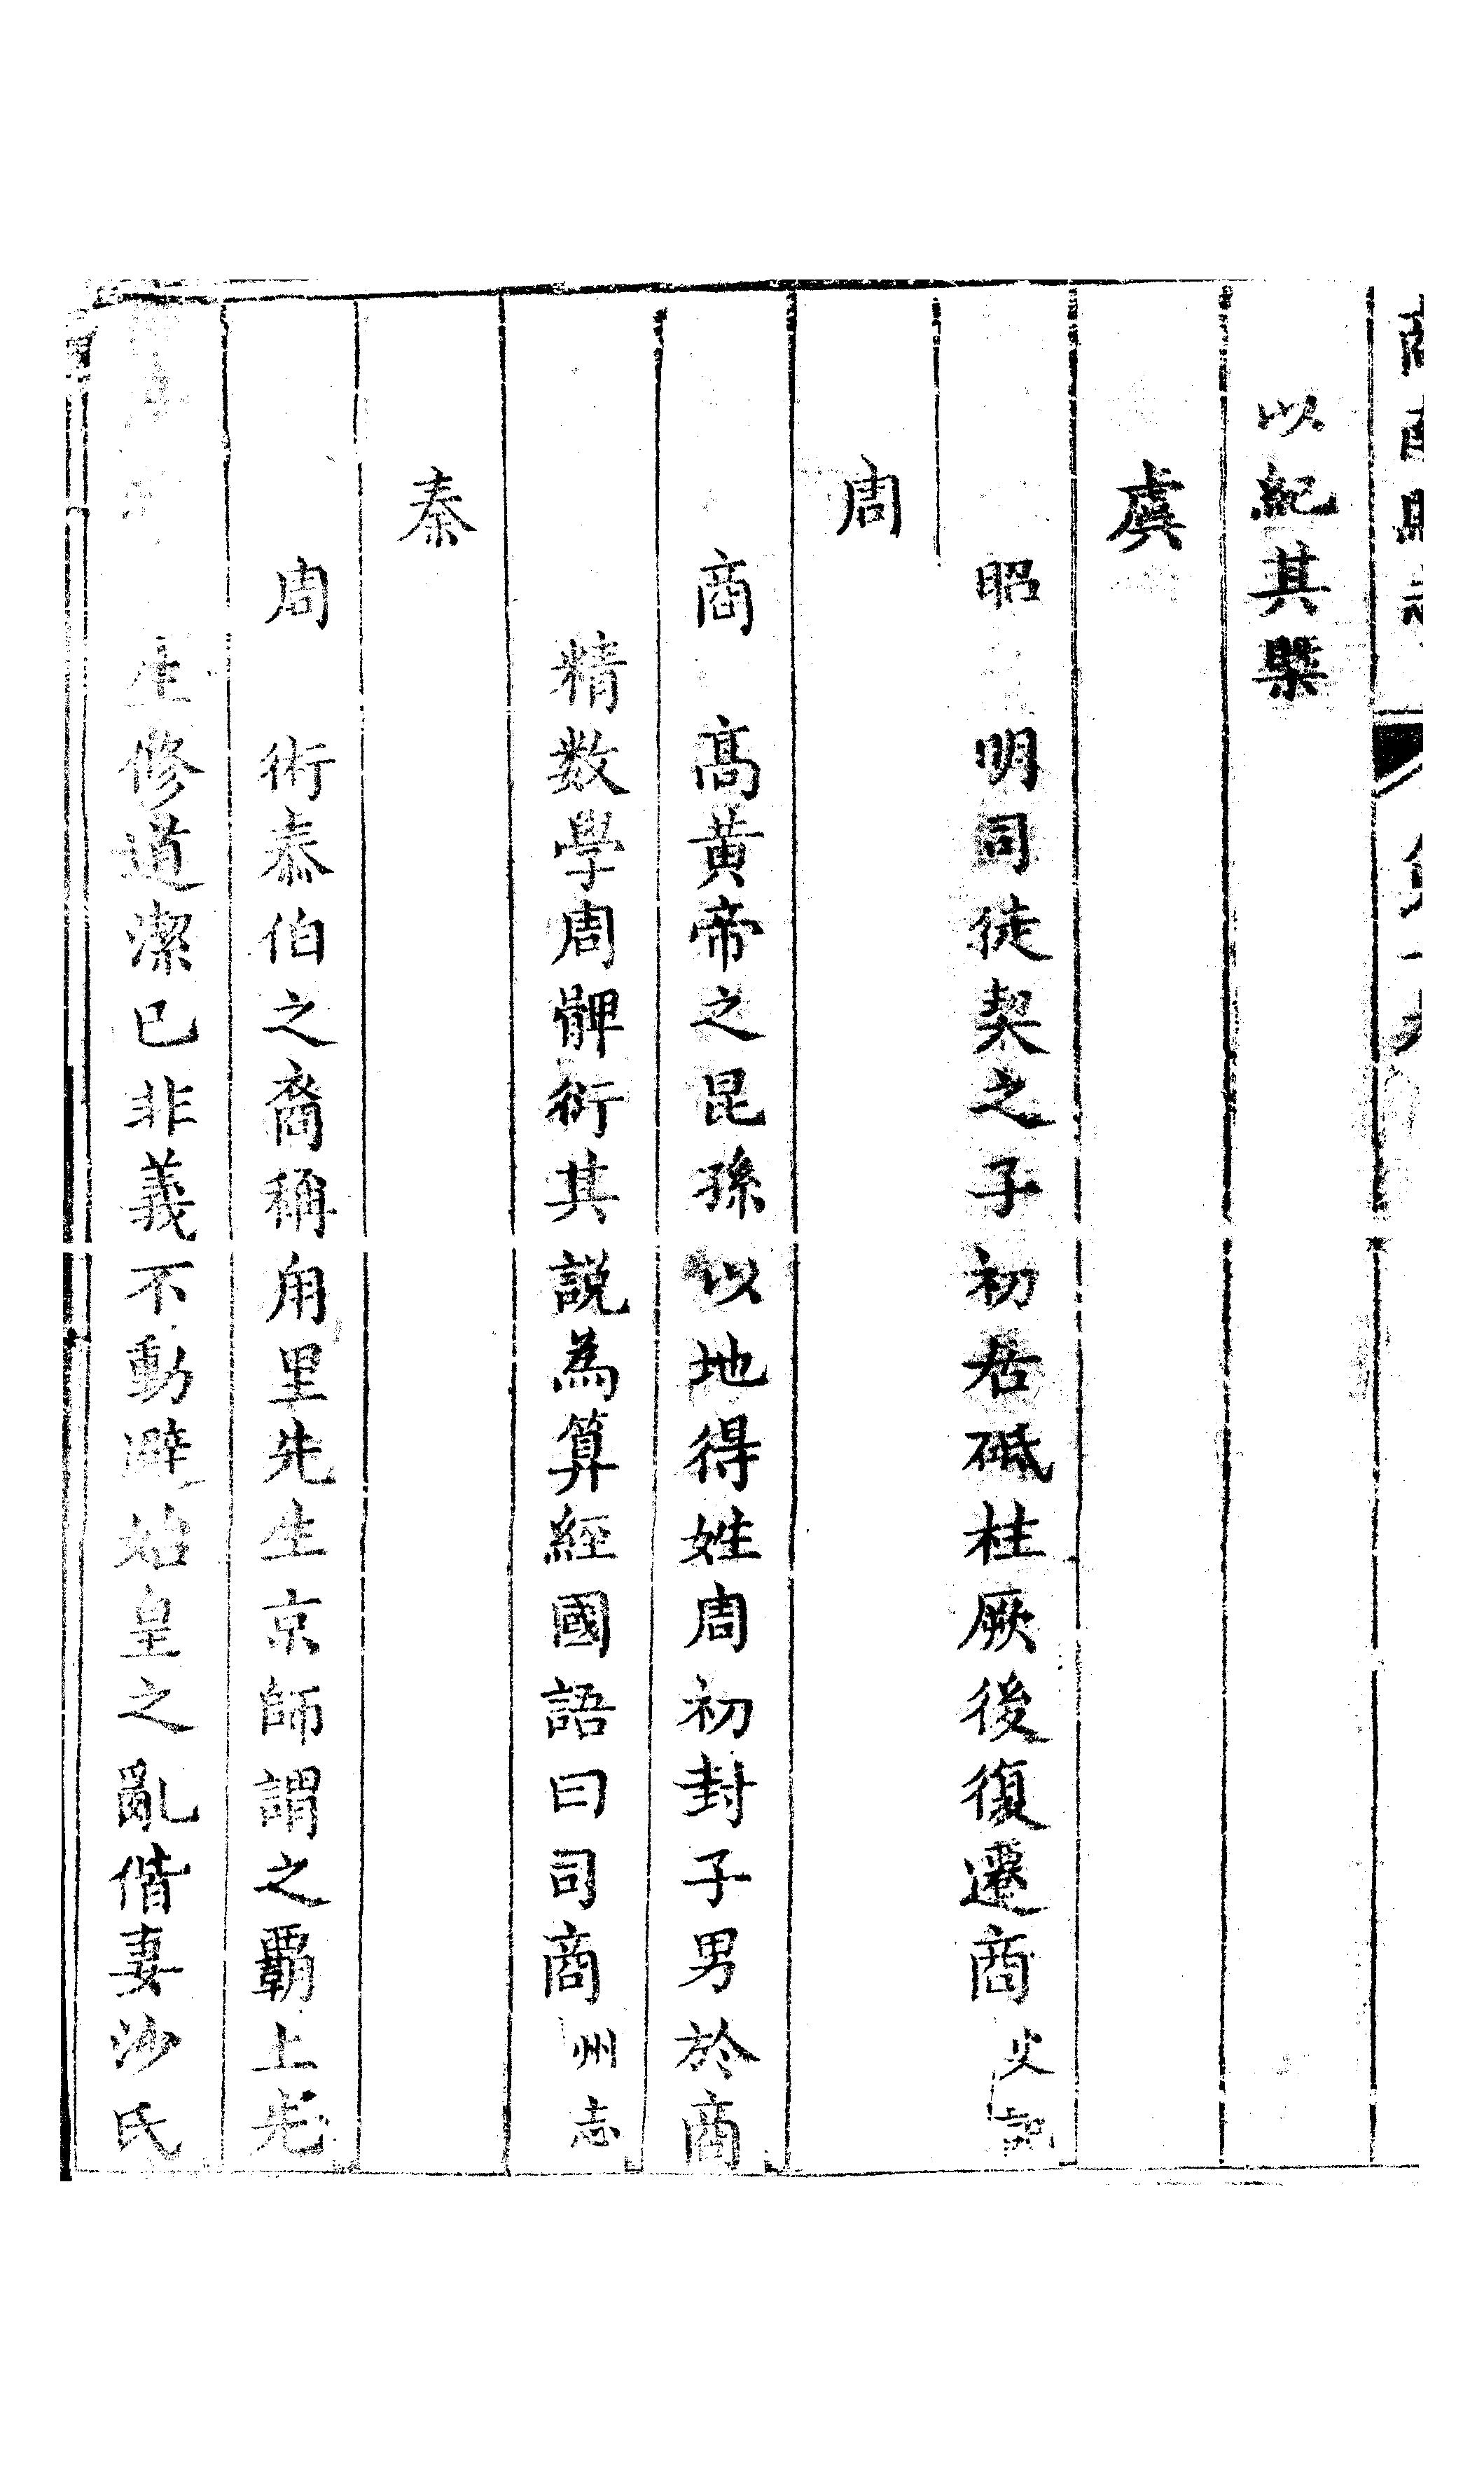 以紀其槩
虞
昭 明司徒契之子初居砥柱厥後復遷商 史記
周
商 高黄帝之昆孫以地得姓周初封子男於商
精数學周髀衍其説為算經國語曰司商 州志
秦
周 術泰伯之裔稱甪里先生京師謂之覇上先
生修道潔已非義不動避始皇之亂偕妻沙氏